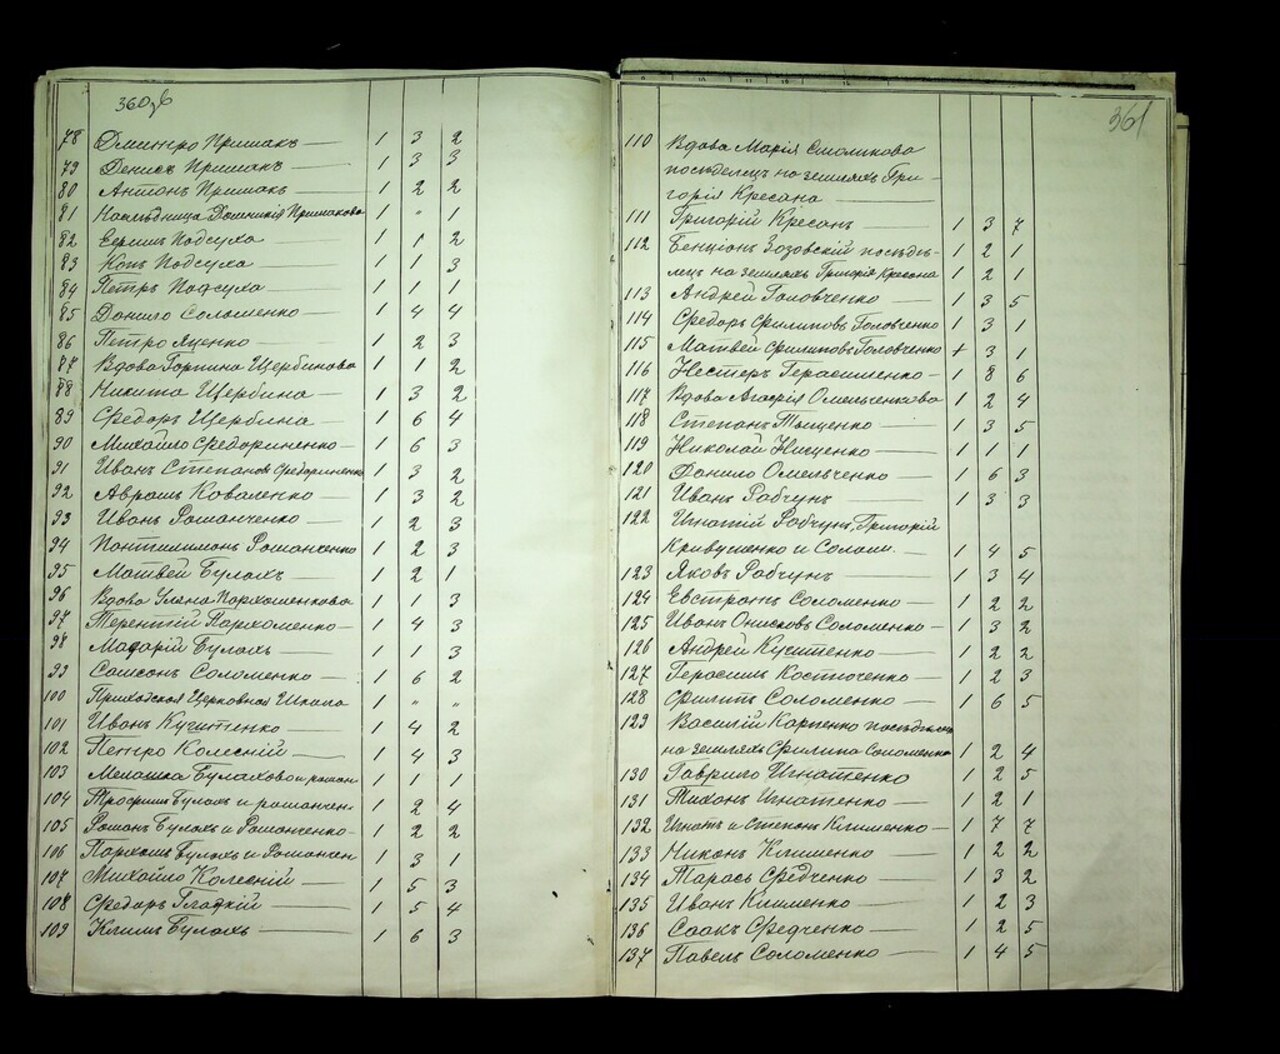 360 об
78 Дмитро Примакъ 1 3 2
79 Денисъ Примакъ 1 3 3
80 Антонъ Примакъ 1 2 2
81 Наслѣдница Домникія Примакова 1 " 1
82 Ефимъ Подсуха 1 1 2
83 Конъ Подсуха 1 1 3
84 Петръ Подсуха 1 1 1
85 Данило Соломенко 1 4 4
86 Петро Яценко 1 2 3
87 Вдова Горпина Щербинова 1 1 2
88 Никита Щербина 1 3 2
89 Федоръ Щербина 1 6 4
90 Михайло Федориненко 1 6 3
91 Иванъ Степановъ Федориненко 1 3 2
92 Аврамъ Коваленко 1 3 2
93 Иванъ Романченко 1 2 3
94 Пантилимонъ Романченко 1 2 3
95 Матвей Булахъ 1 2 1
96 Вдова Уляна Пархоменкова 1 1 3
97 Терентій Пархоменко 1 4 3
98 Макарій Булахъ 1 1 3
99 Самсонъ Соломенко 1 6 2
100 Приходская Церковная Школа " "
101 Иванъ Кучитенко 1 4 2
102 Петро Колесній 1 4 3
103 Мелашка Булахова и роман 1 1 1
104 Трофимъ Булахъ и романчен. 1 2 4
105 Романъ Булахъ и Романченко 1 2 2
106 Пархомъ Булахъ и Романчен 1 3 1
107 Михайло Колесній 1 5 3
108 Федоръ Гладкій 1 5 4
109 Климъ Булахъ 1 6 3
361
110 Вдова Марія Смоликова
посѣделецъ на земляхъ Гри-
горія Кресана
111 Григорій Кресанъ 1 3 7
112 Бенціонъ Зозовскій посѣдѣ- 1 2 1
лецъ на земляхъ Григорія Кресана 1 2 1
113 Андрей Головченко 1 3 5
114 Федоръ Филиповъ Головченко 1 3 1
115 Матвей Филиповъ Головченко + 3 1
116 Нестеръ Герасименко 1 8 6
117 Вдова Агафія Омельченкова 1 2 4
118 Степанъ Тыщенко 1 3 5
119 Николай Нищенко 1 1 1
120 Данило Омельченко 1 6 3
121 Иванъ Рабчунъ 1 3 3
122 Игнатій Рабчунъ, Григорій
Кривушенко и Солом. 1 4 5
123 Яковъ Рабчунъ 1 3 4
124 Евстратъ Соломенко 1 2 2
125 Иванъ Онисковъ Соломенко 1 3 2
126 Андрей Кучитенко 1 2 2
127 Герасимъ Костюченко 1 2 3
128 Филипъ Соломенко 1 6 5
129 Василій Карпенко посѣделецъ
на земляхъ Филипа Соломенка 1 2 4
130 Гаврило Игнатенко 1 2 5
131 Тихонъ Игнатенко 1 2 1
132 Игнатъ и Степанъ Клименко 1 7 7
133 Никонъ Клименко 1 2 2
134 Тарасъ Федченко 1 3 2
135 Иванъ Клименко 1 2 3
136 Саакъ Федченко 1 2 5
137 Павелъ Соломенко 1 4 5